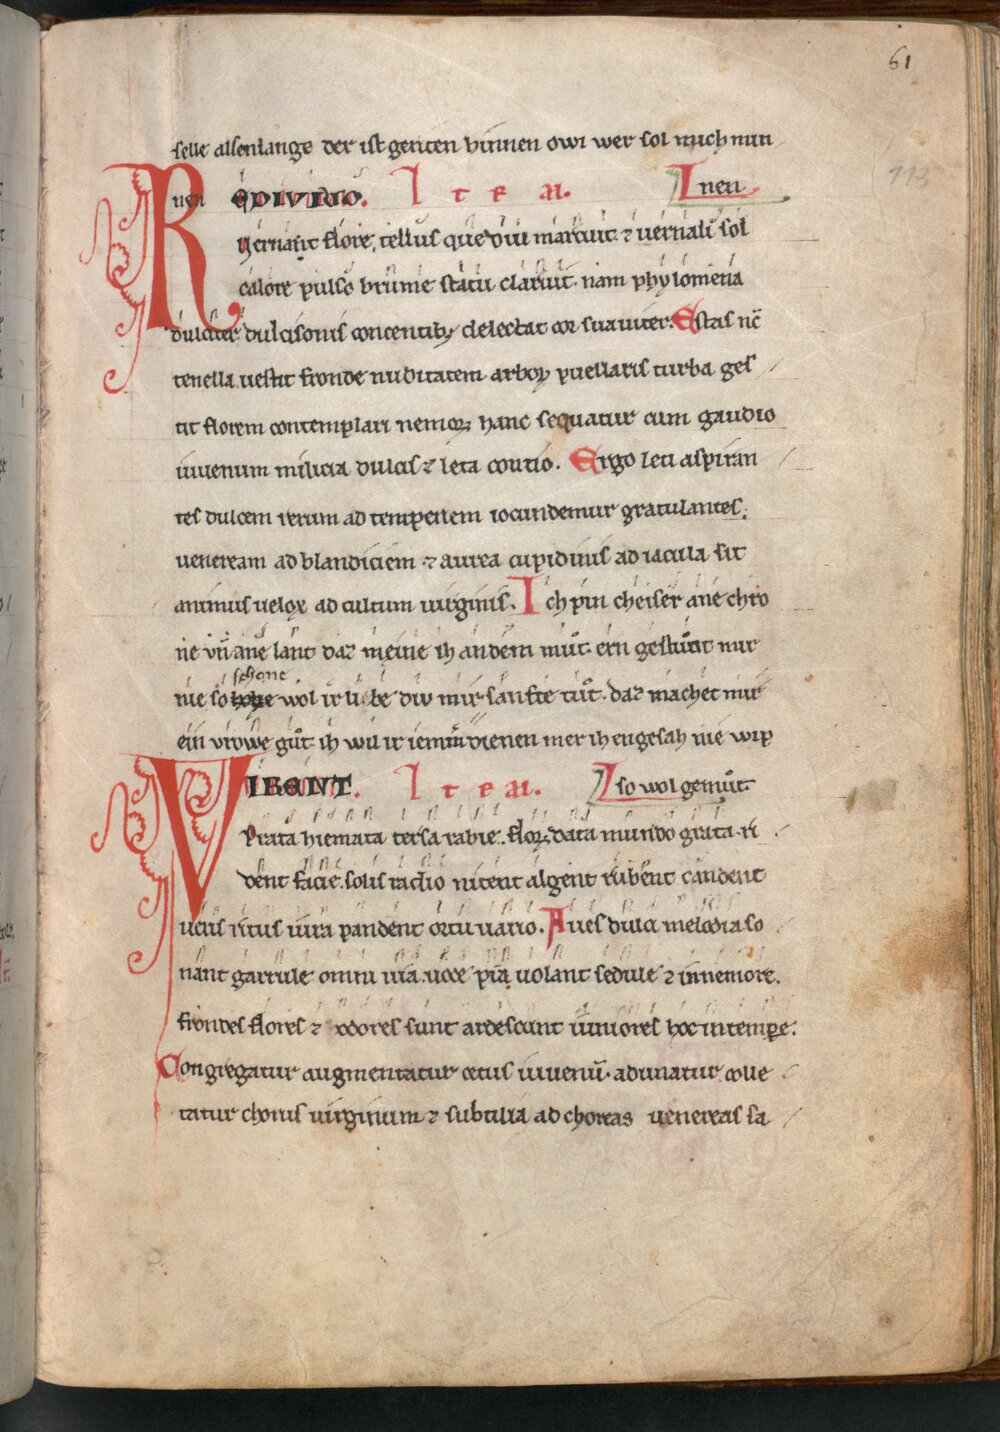 61
selle alsenlange der ist geriten hinnen owi wer sol mich min
nen REDIVIVO. Item. I neu
Vernant flore, tellus que diu marcuit. ⁊ uernali sol
calore pulso brume statu claruit. nam phylomena
dulciter dulcisonis concentibꝫ delectat cor suauiter. Estas nc̄
tenella. uestit fronde nuditatem arboꝝ puellaris turba ges
tit florem contemplari nemoꝝ hanc sequatur cum gaudio
iuuenum milicia dulcis ⁊ leta contio. Ergo leti aspiran
tes dulcem uerum ad temperiem iocundemur gratulantes.
veneream ad blandiciem ⁊ aurea cupidinis ad iacula sit
animus uelox ad cultum uirginis. Ich pin cheiser ane chro
ne vn̄ ane lant daz meine ih an dem můt. ern gestůnt mir
schone
nie so wol ir libe diu mir sanfte tůt. daz machet mir
ein vrowe gůt. ih wil ir iemm̄ dienen mer ih engesah nie wip
VIRENT Item. so wol gemůt.
Prata hiemata tersa rabie. floꝝ data mundo grata ri
dent facie. solis radio nitent algent rubent candent
ueris ritus iura pandent ortu uario. Aues dulci melodia so
nant garrule omni uia uoce pia uolant sedule ⁊ in nemore.
frondes flores ⁊ odores sunt ardescunt iuniores hoc in tempore.
Congregatur augmentatur cetus iuuenū. adunatur colle
tatur chorus uirginum ⁊ sub tilia ad choreas venereas sa